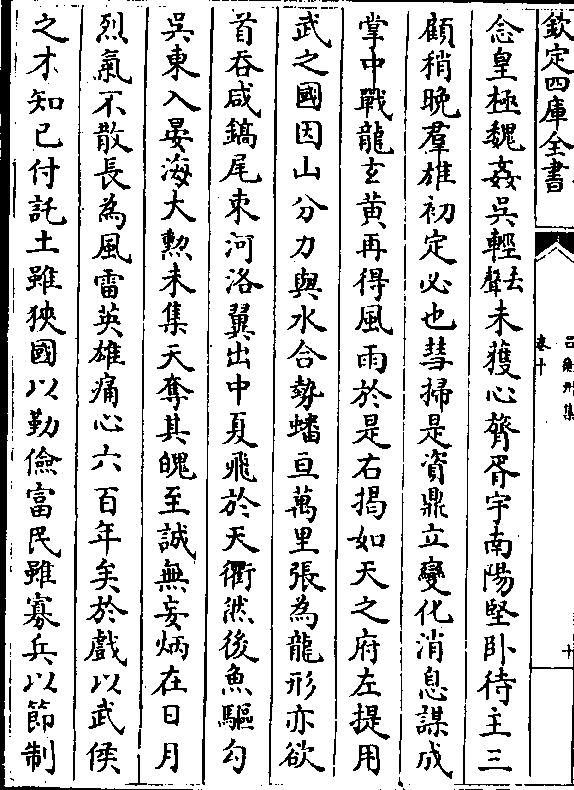 欽定四庫全書
呂衡州集
卷十
十
念皇極魏姦吳輕未獲心膂胥宇南陽堅卧待主三
顧稍晚羣雄初定必也彗掃是資鼎立變化消息謀成
掌中戰龍玄黃再得風雨於是右揭如天之府左提用
武之國因山分力與水合勢蟠亘萬里張為龍形亦欲
首吞咸鎬尾束河洛翼出中夏飛於天衢然後魚驅勾
吳東入晏海大勲未集天奪其魄至誠無妄炳在日月
烈氣不散長為風雷英雄痛心六百年矣於戲以武侯
之才知已付託土雖狹國以勤儉富民雖寡兵以節制